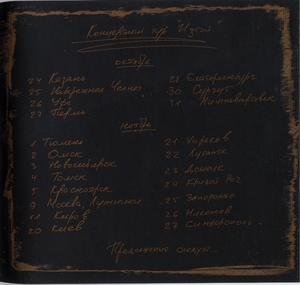 Концертный тур "Изгой"
октябрь
24 Казань
25 Набережные Челны
26 Уфа
27 Пермь
29 Екатеринбург
30 Сургут
31 Нижневартовск
ноябрь
1 Тюмень
2 Омск
3 Новосибирск
4 Томск
5 Красноярск
9 Москва, Лужники
11 Киров
20 Киев
21 Харьков
22 Луганск
23 Донецк
24 Кривой Рог
25 Запорожье
26 Николаев
27 Симферополь
Продолжение следует...